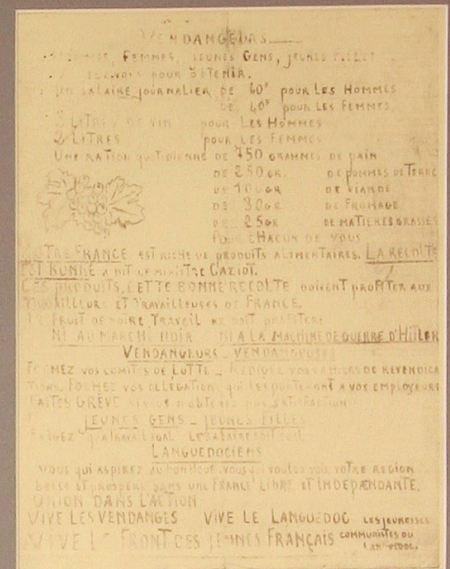 VENDANGEURS
HOMMES, FEMMES, JEUNES GENS, JEUNES FILLES
POUR OBTENIR.
UN SALAIRE JOURNALIER DE 60F POUR LES HOMMES
DE 40F POUR LES FEMMES
3 LITRES DE VIN POUR LES HOMMES
2 LITRES POUR LES FEMMES
UNE RATION QUOTIDIENNE DE 750 GRAMMES DE PAIN
DE 250 GR. DE POMMES DE TERRE
DE 100 GR DE VIANDE
DE 30 GR DE FROMAGE
DE 25 GR DE MATIERES GRASSES
POUR CHACUN DE VOUS
NOTRE FRANCE EST RICHE DE PRODUITS ALIMENTAIRES. LA RECOLTE
EST BONNE A DIT LE MINISTRE CAZIOT.
CES PRODUITS, CETTE BONNE RECOLTE DOIVENT PROFITER AUX
TRAVAILLEURS ET TRAVAILLEUSES DE FRANCE.
LE FRUIT DE NOTRE TRAVAIL NE DOIT PROFITER
NI AU MARCHE NOIR NI A LA MACHINE DE GUERRE D'HITLER
VENDANGEURS - VENDANGEUSES
FORMEZ VOS COMITES DE LUTTE - REDIGEZ VOS CAHIERS DE REVENDICA
TIONS. FORMEZ VOS DELEGATIONS QUI LES PORTERONT A VOS EMPLOYEURS
FAITES GREVE SATISFACTION
JEUNES GENS - JEUNES FILLES
EXIGEZ QU'A TRAVAIL EGAL LE SALAIRE SOIT EGAL
LANGUEDOCIENS
VOUS QUI ASPIREZ AU BONHEUR VOUS VOULEZ VOIR VOTRE REGION
BELLE ET PROSPERE DANS UNE FRANCE LIBRE ET INDEPENDANTE.
UNION DANS L'ACTION
VIVE LES VENDANGES VIVE LE LANGUEDOC LES JEUNESSES
VIVE LE FRONT DES JEUNES FRANÇAIS COMMUNISTES DU
LANGUEDOC.